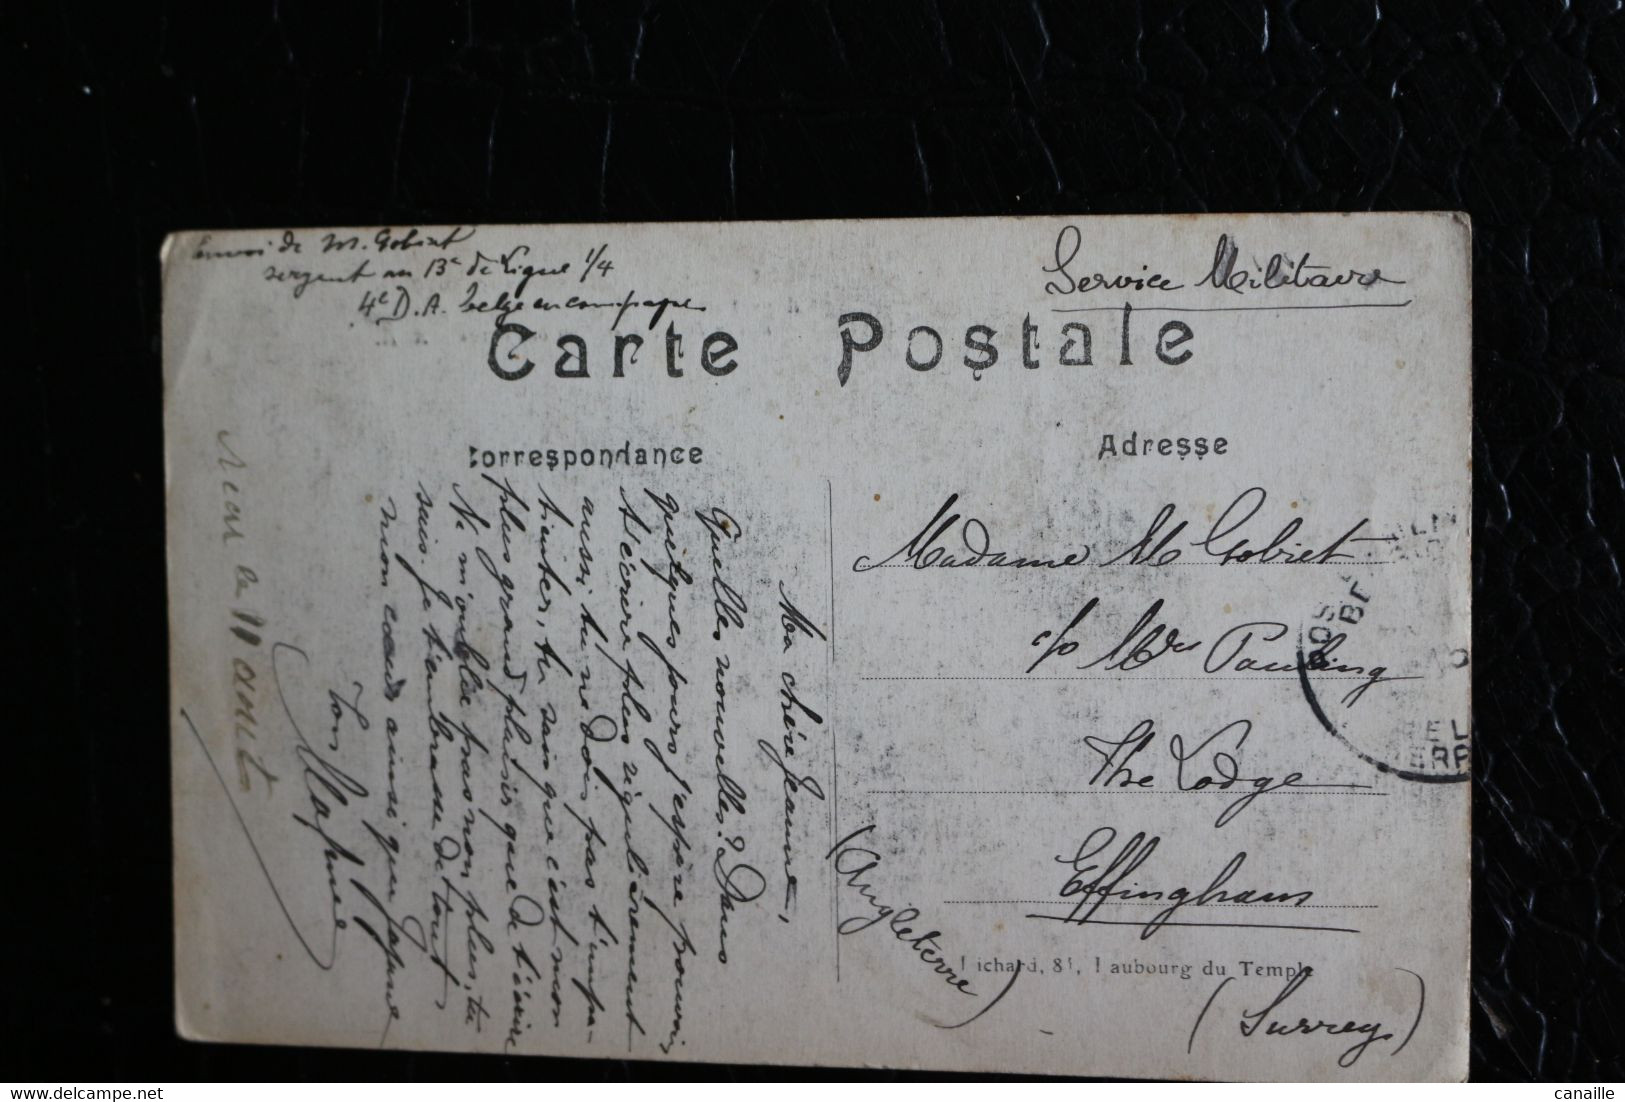 Envoi de M. Gobiet
sergent au 13e de Ligne 1/4
4e D.A. belge en campagne
Service Militaire
Carte Postale
Correspondance
Adresse
Ma chère Jeanne,
Quelles nouvelles? Dans
quelques jours j'espère pouvoir
t'écrire plus régulièrement
aussi tu ne dois pas t'impa-
tienter, tu sais que c'est mon
plus grand plaisir que de t'écrire
Ne m'oublie pas non plus, tu
sais. Je t'embrasse de tout
mon cœur ainsi que
Ton
le 11 août
Madame M Gobiet
c/o Mrs Pauling
The Lodge
Effingham
(Surrey)
(Angleterre)
Richard, 84, Faubourg du Temple
delcampe.net
canaille